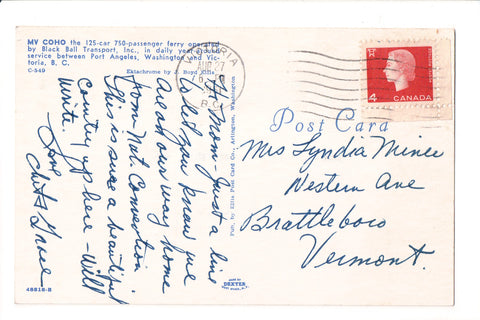 MV COHO the 125-car 750-passenger ferry operated
by Black Ball Transport, Inc., in daily year around
service between Port Angeles, Washington and Vic-
toria, B. C.
C-549
Ektachrome by J. Boyd Ellis
VICTORIA
AUG 27
B.C.
4
CANADA
Hi Mom - Just a line
to let you know we
are on our way home
from Nat. Convention
This is such a beautiful
country up here - will
write.
Love
Pub. by Ellis Post Card Co., Arlington, Washington
Post Card
Mrs Lyndia Miner
Western Ave
Brattleboro
Vermont.
48816-B
DEXTER